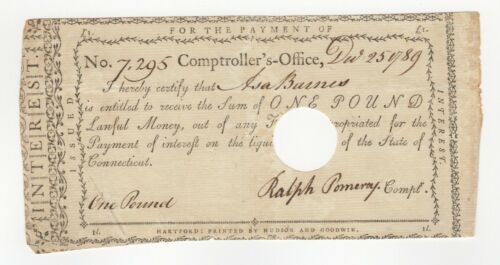 £1. FOR THE PAYMENT OF £1.
INTEREST.
ISSUED
No. 7,295 Comptroller's-Office, Decr 25 1789
I hereby certify that Asa Barnes
is entitled to receive the Sum of ONE POUND
Lawful Money, out of any propriated for the
Payment of interest on the liqui of the State of
Connecticut.
Ralph Pomeroy Compt.
One Pound
INTEREST.
1l. HARTFORD: PRINTED BY HUDSON AND GOODWIN. 1l.